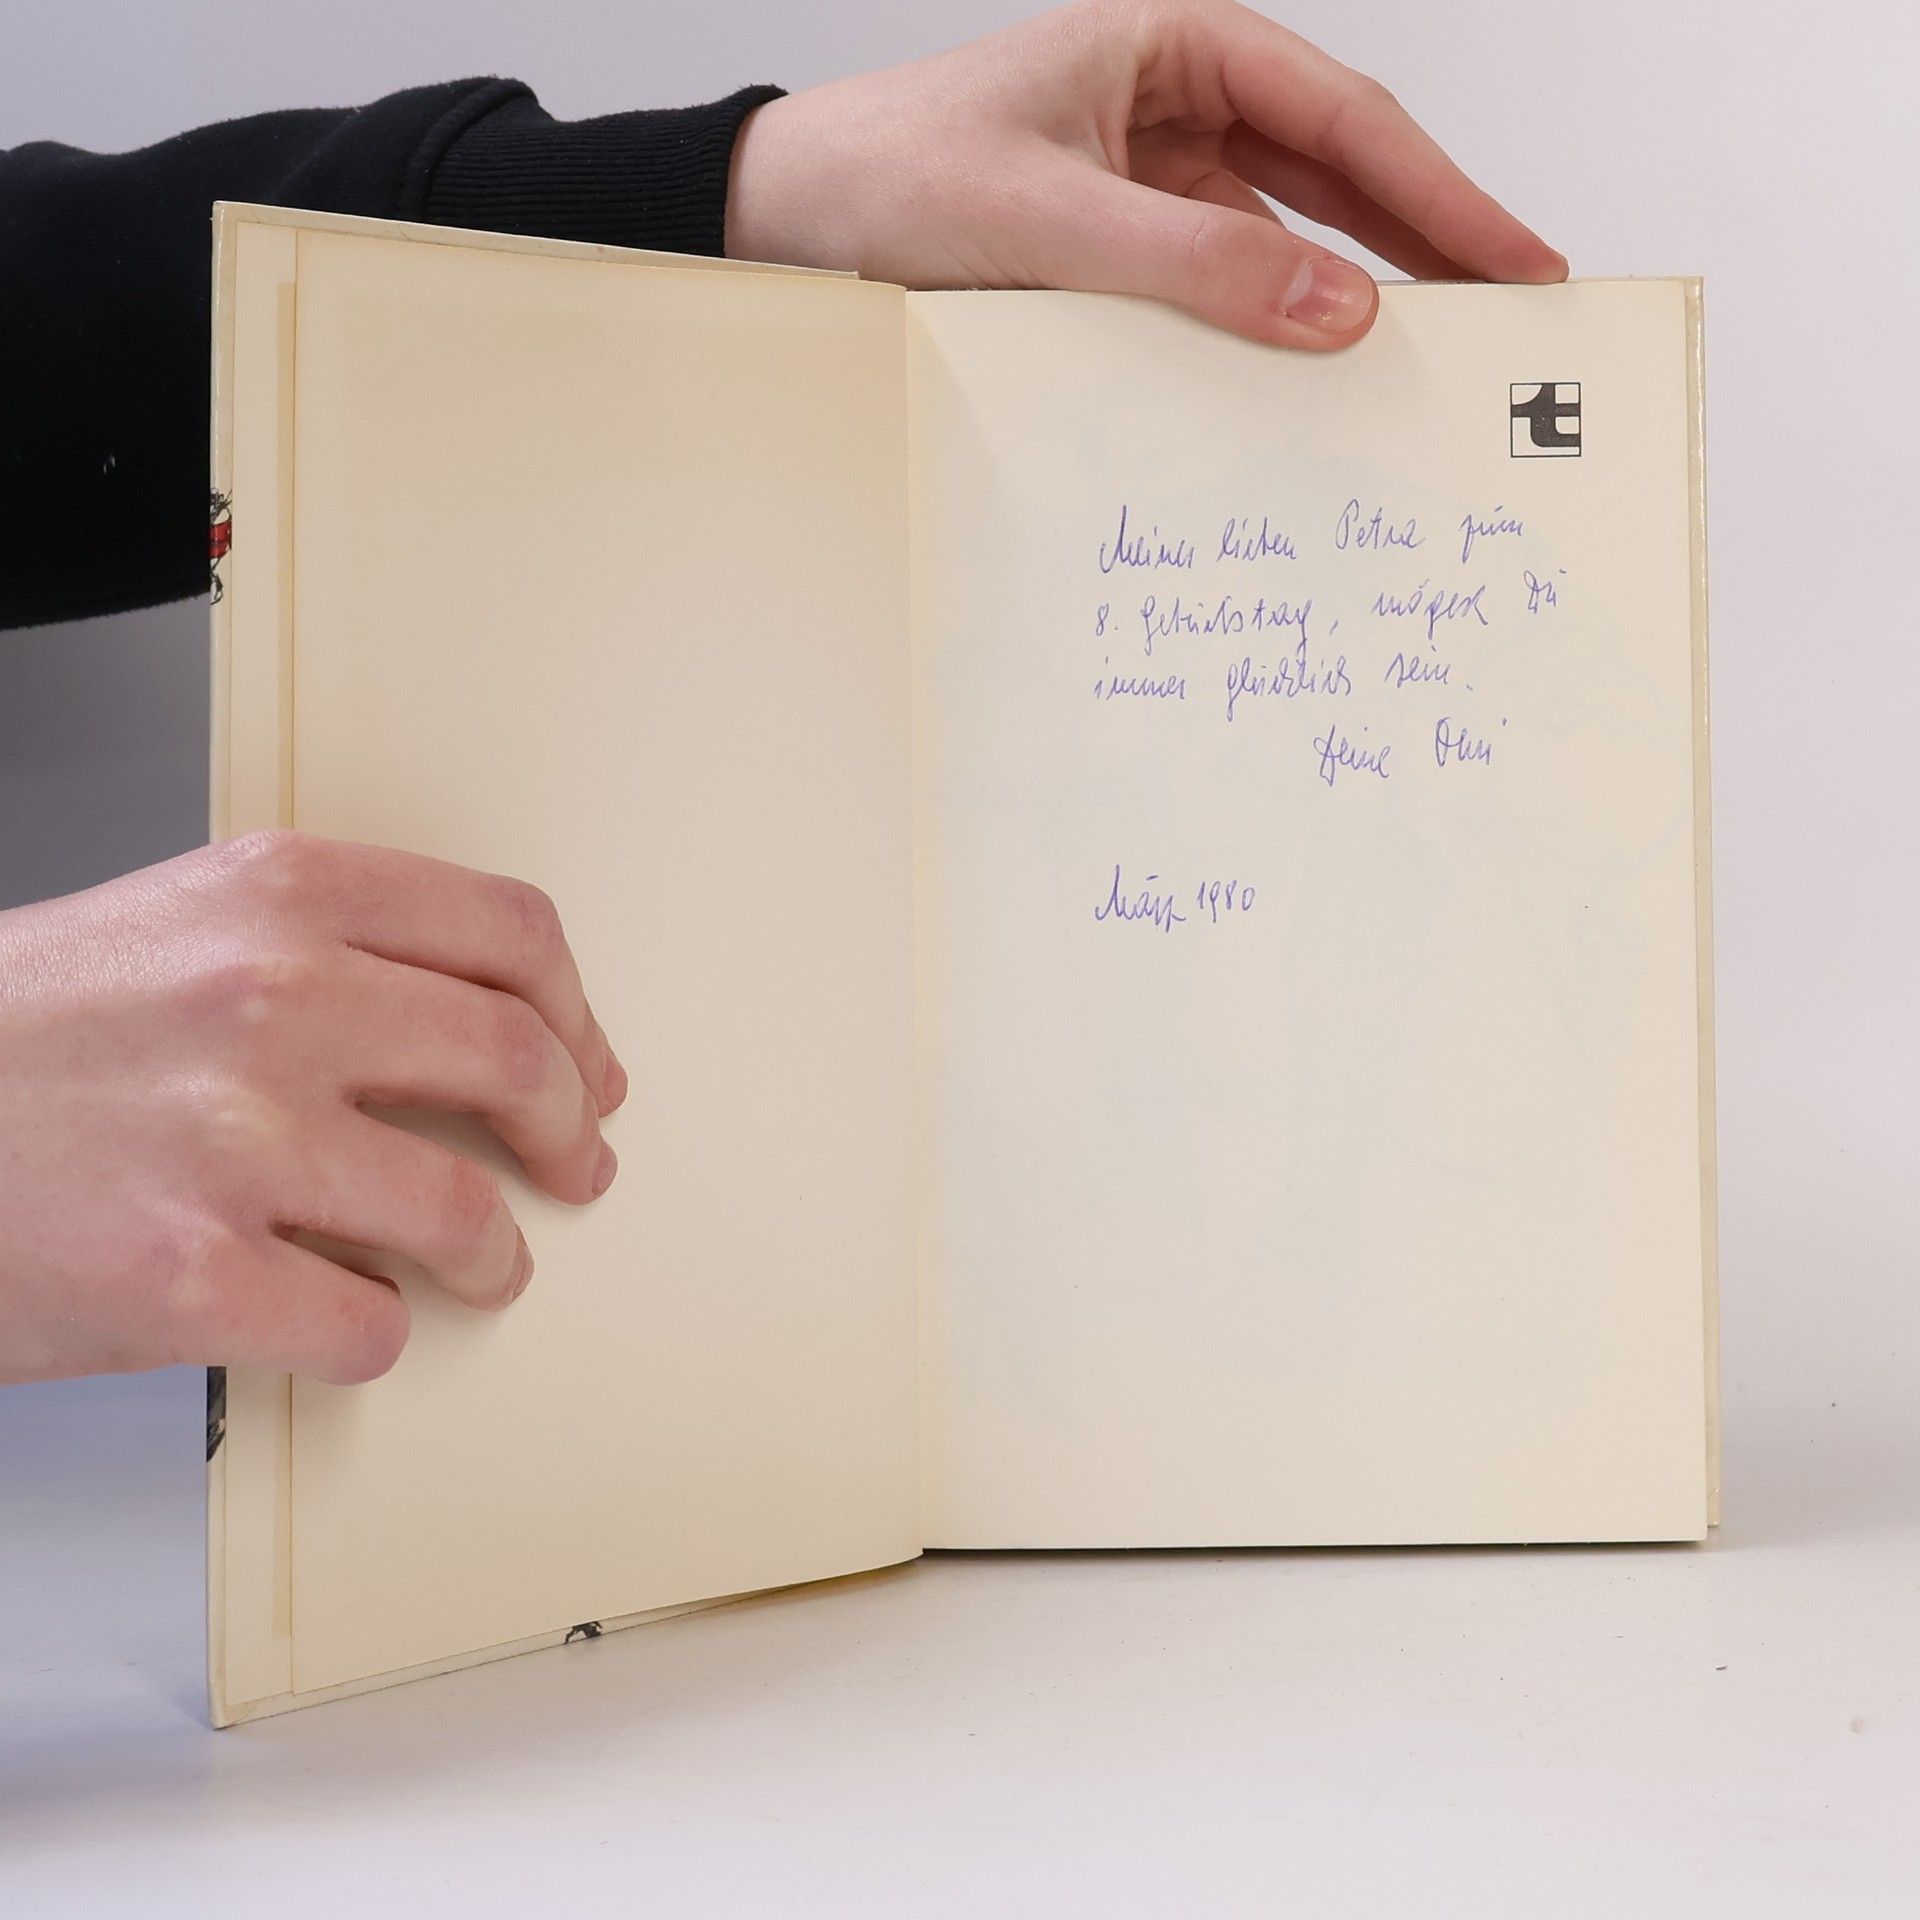 t
Meiner lieben Petra zum
8. Geburtstag, mögest Du
immer glücklich sein.
Deine Omi
März 1980